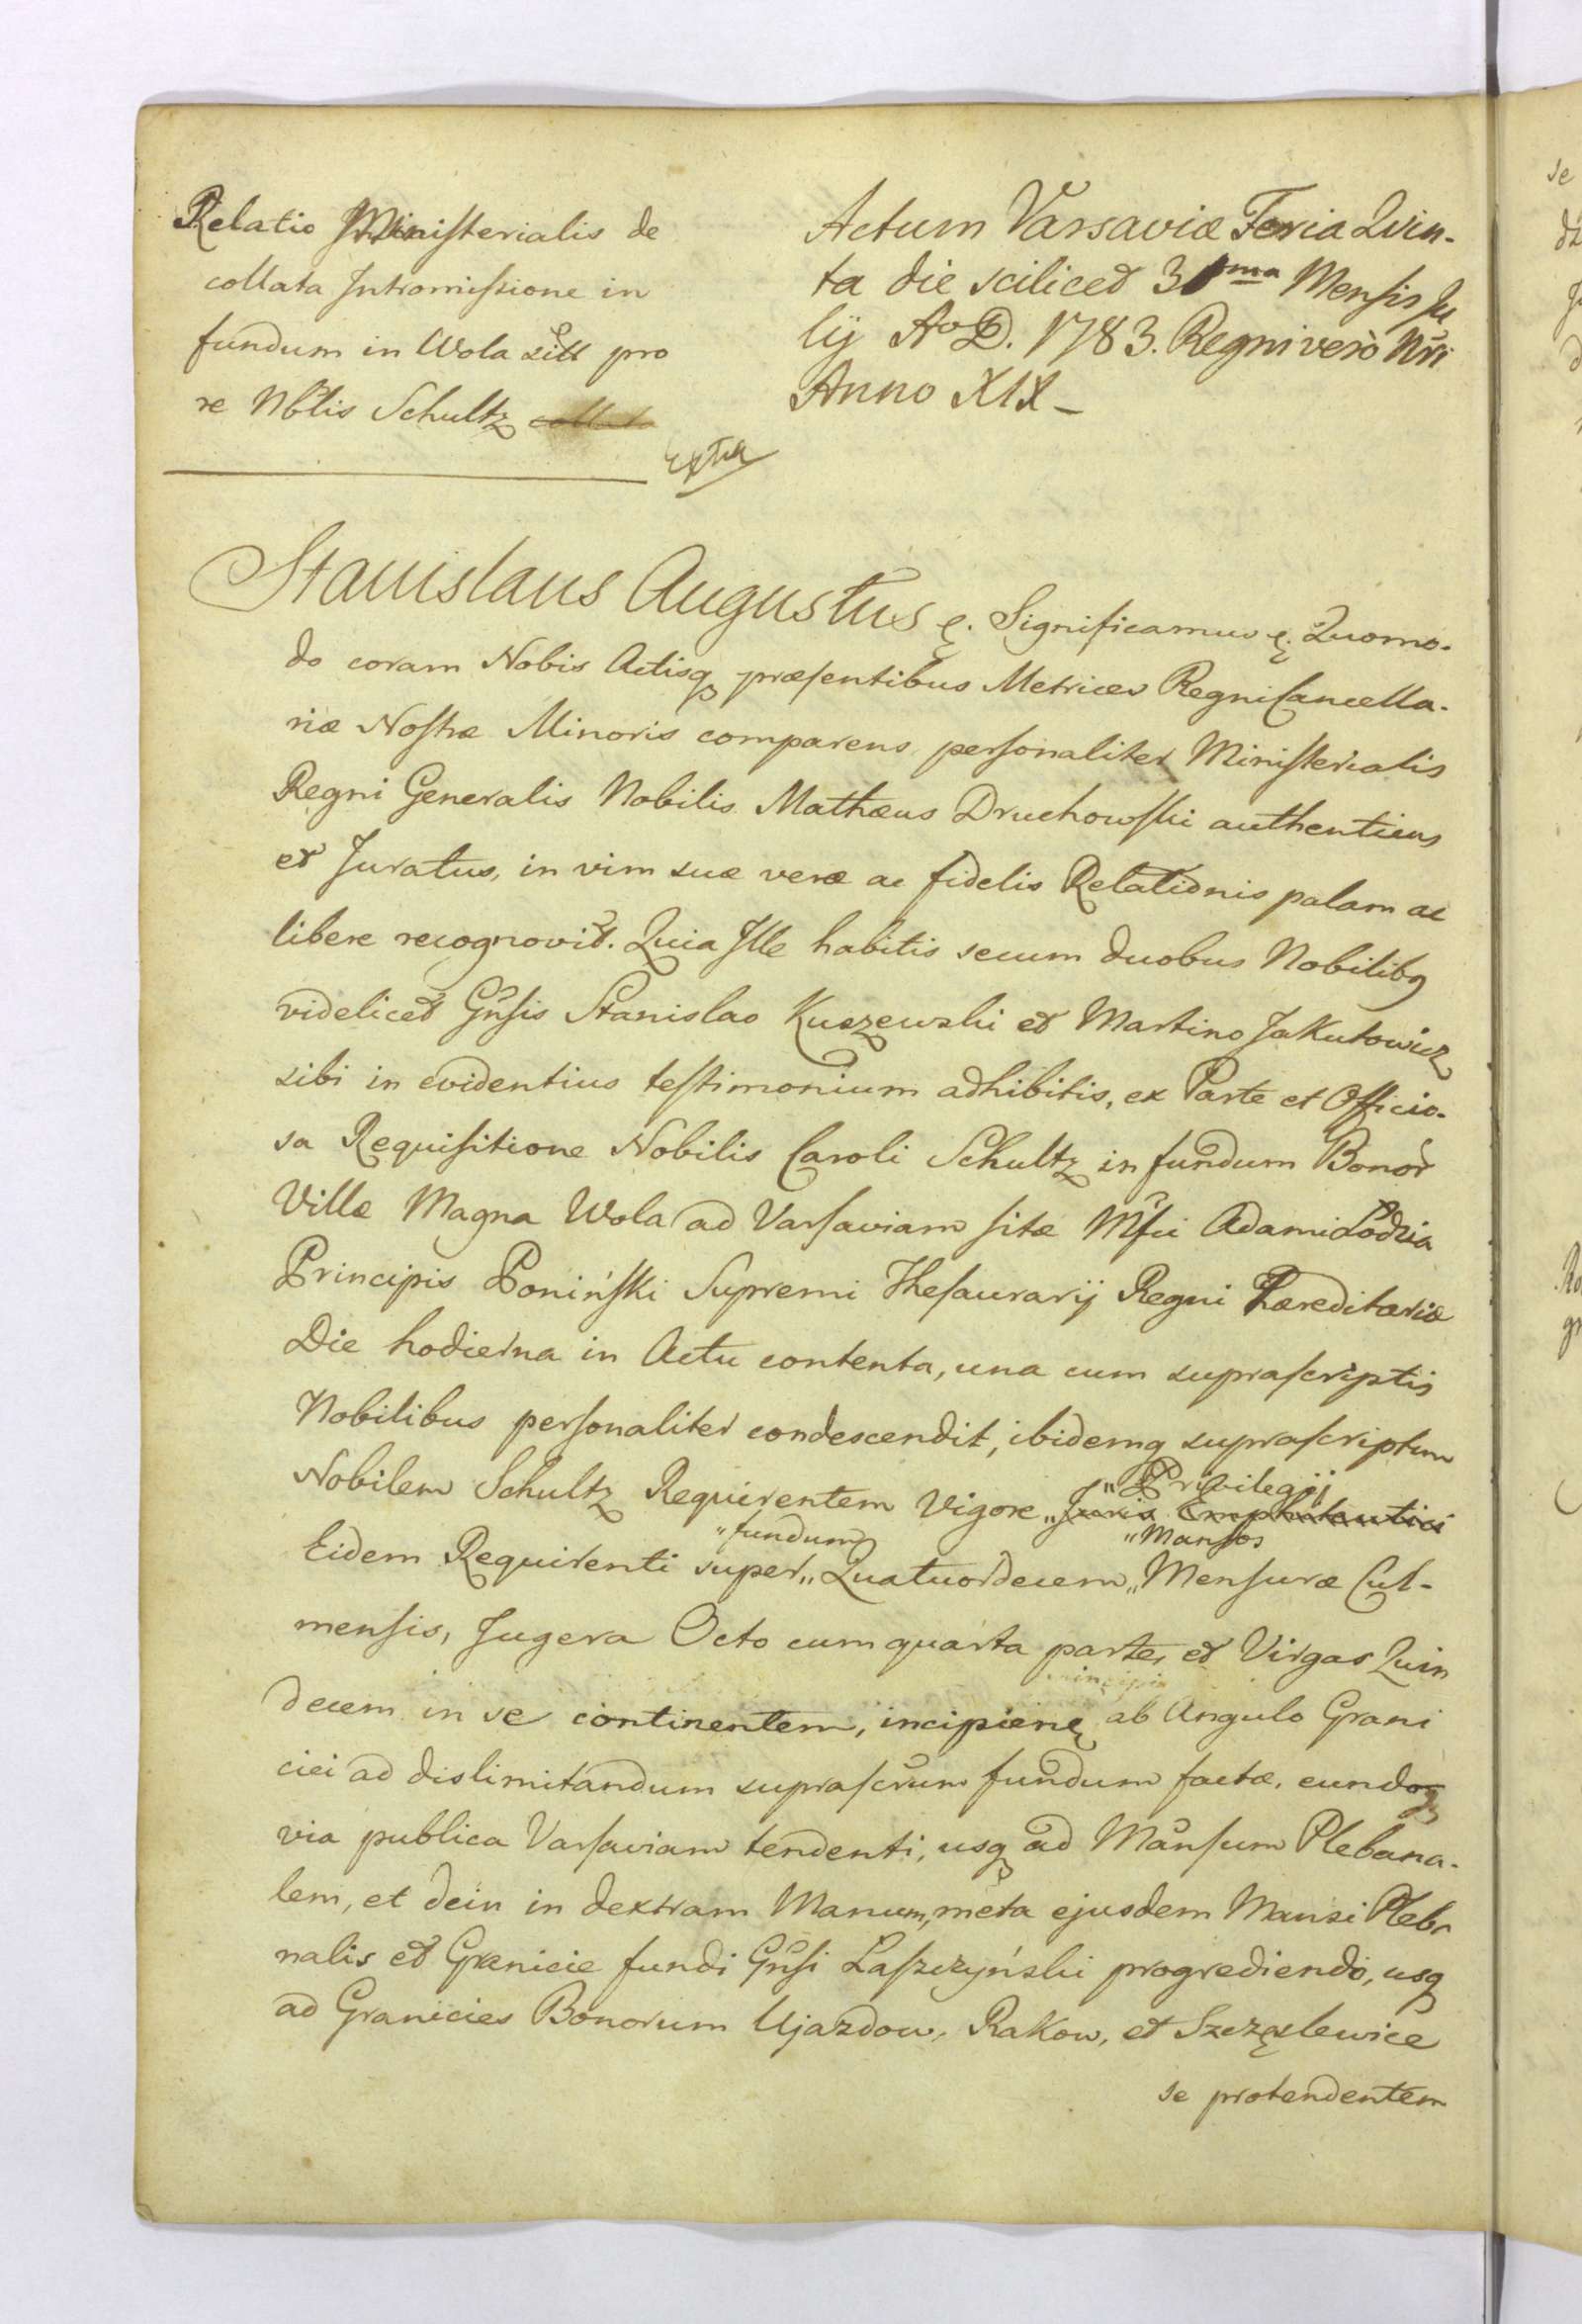 Relatio Ministerialis de
collata Intromissione in
fundum in Wola sitt pro
re Nbtis Schultz
Extra
Actum Varsaviæ Feria Quin-
ta die scilicet 31ma Mensis Ju
lij Ao D. 1783. Regni vero Nri
Anno XIX
Stanislaus Augustus &. Significamus &. Quomo-
do coram Nobis Actisq præsentibus Metrices Regni Cancella-
riæ Nostræ Minoris comparens personaliter Ministerialis
Regni Generalis Nobilis Mathæus Druchowski authenticus
et Juratus, in vim suæ veræ ac fidelis Relationis palam ac
libere recognovit. Quia Ille habitis secum duobus Nobilibq
videlicet Gnsis Stanislao Kuczewski et Martino Jakutowicz
sibi in evidentius testimonium adhibitis, ex Parte et Officio-
sa Requisitione Nobilis Caroli Schultz in fundum Bonor
Villæ Magna Wola ad Varsaviam sitæ Mfci Adami Lodzia
Principis Poniński Supremi Thesaurarij Regni Hæreditariæ
Die hodierna in Actu contenta, una cum suprascriptis
Nobilibus personaliter condescendit, ibidemq suprascriptum
Nobilem Schultz Requirentem Vigore „Juris Emphiteutici „Privilegij
Eidem Requirenti super „fundum „Quatuordecem „Mansos „Mensuræ Cul-
mensis, Jugera Octo cum quarta parte, et Virgas Quin
decem in se continentem, incipiene ab Angulo Grani
ciei ad dislimitandum suprascrum fundum factæ, eundoq
via publica Varsaviam tendenti, usq ad Mansum Plebana-
lem, et dein in dextram Manum, meta ejusdem Mansi Pleba
nalis et Granicie fundi Gnsi Laszczyński progrediendo, usq
ad Granicies Bonorum Ujazdow, Rakow, et Szczęslewice
se protendentem